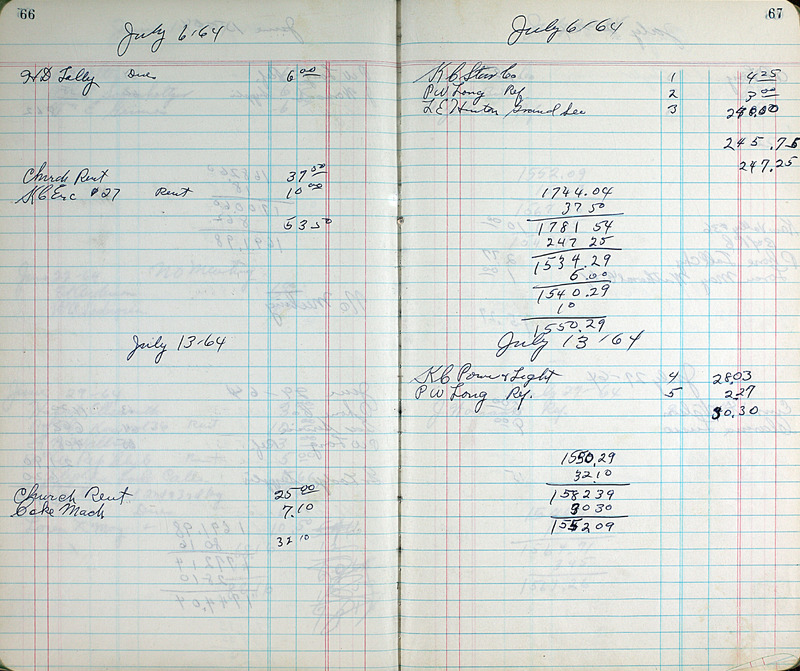 66
July 6/64
HD Lally Dues 6 00
Church Rent 37 50
KC Enc #27 Rent 10 00
53 50
July 13/64
Church Rent 25 00
Coke Mach 7.10
32 10
67
July 6/64
KC Stur Co 1 4 25
PW Long Ref 2 3 00
LE Hinton Grand Sec 3
245.75
247.25
1744.04
37 50
1781 54
247 25
1534.29
6.00
1540.29
10
1550.29
July 13/64
KC Power & Light 4 28.03
PW Long Ref. 5 2.27
30.30
1550.29
32.10
158239
3030
155209